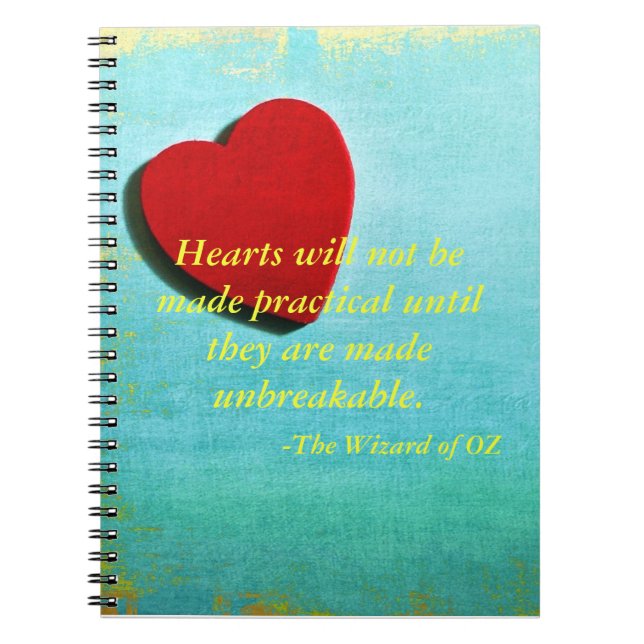 Hearts will not be
made practical until
they are made
unbreakable.
-The Wizard of OZ